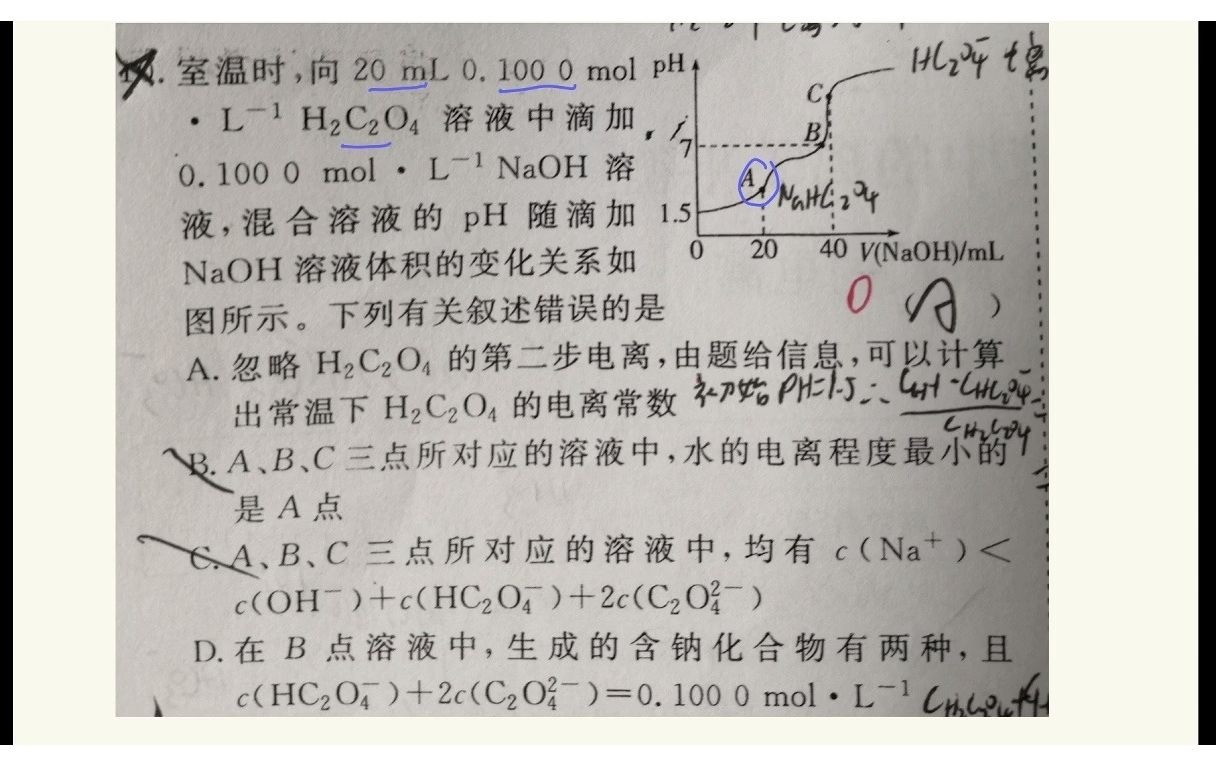 室温时,向 20 mL 0. 100 0 mol
· L⁻¹ H₂C₂O₄ 溶液中滴加
0. 100 0 mol · L⁻¹ NaOH 溶
液,混合溶液的 pH 随滴加
NaOH 溶液体积的变化关系如
图所示。下列有关叙述错误的是
( A )
0
pH
7
1.5
0 20 40 V(NaOH)/mL
A
B
C
NaHC₂O₄
HC₂O₄⁻
A. 忽略 H₂C₂O₄ 的第二步电离,由题给信息,可以计算
出常温下 H₂C₂O₄ 的电离常数
初始 PH=1.5
B. A、B、C 三点所对应的溶液中,水的电离程度最小的
是 A 点
C. A、B、C 三点所对应的溶液中,均有 c(Na⁺)<
c(OH⁻)+c(HC₂O₄⁻)+2c(C₂O₄²⁻)
D. 在 B 点溶液中,生成的含钠化合物有两种,且
c(HC₂O₄⁻)+2c(C₂O₄²⁻)=0. 100 0 mol · L⁻¹